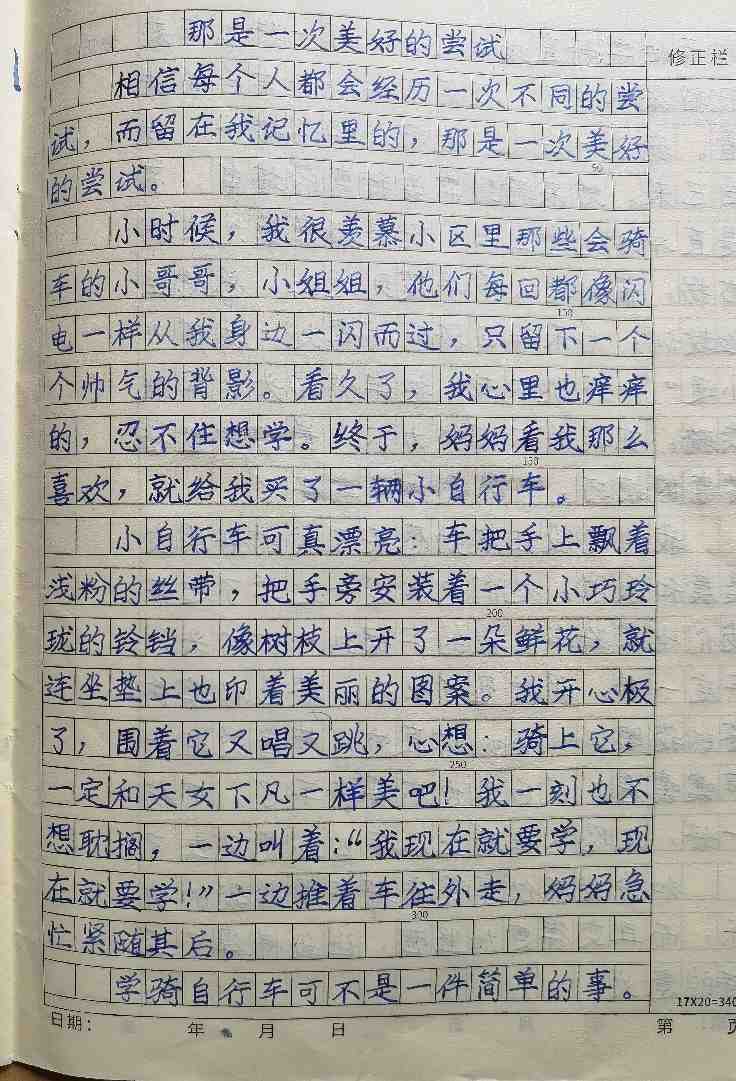 那是一次美好的尝试
修正栏
相信每个人都会经历一次不同的尝
试，而留在我记忆里的，那是一次美好
50
的尝试。
小时候，我很羡慕小区里那些会骑
车的小哥哥，小姐姐，他们每回都像闪
100
电一样从我身边一闪而过，只留下一个
个帅气的背影。看久了，我心里也痒痒
的，忍不住想学。终于，妈妈看我那么
150
喜欢，就给我买了一辆小自行车。
小自行车可真漂亮：车把手上飘着
浅粉的丝带，把手旁安装着一个小巧玲
200
珑的铃铛，像树枝上开了一朵鲜花，就
连坐垫上也印着美丽的图案。我开心极
了，围着它又唱又跳，心想：骑上它，
250
一定和天女下凡一样美吧！我一刻也不
想耽搁，一边叫着：“我现在就要学，现
在就要学！”一边推着车往外走，妈妈急
300
忙紧随其后。
学骑自行车可不是一件简单的事。
17X20=340
日期： 年 月 日 第 页